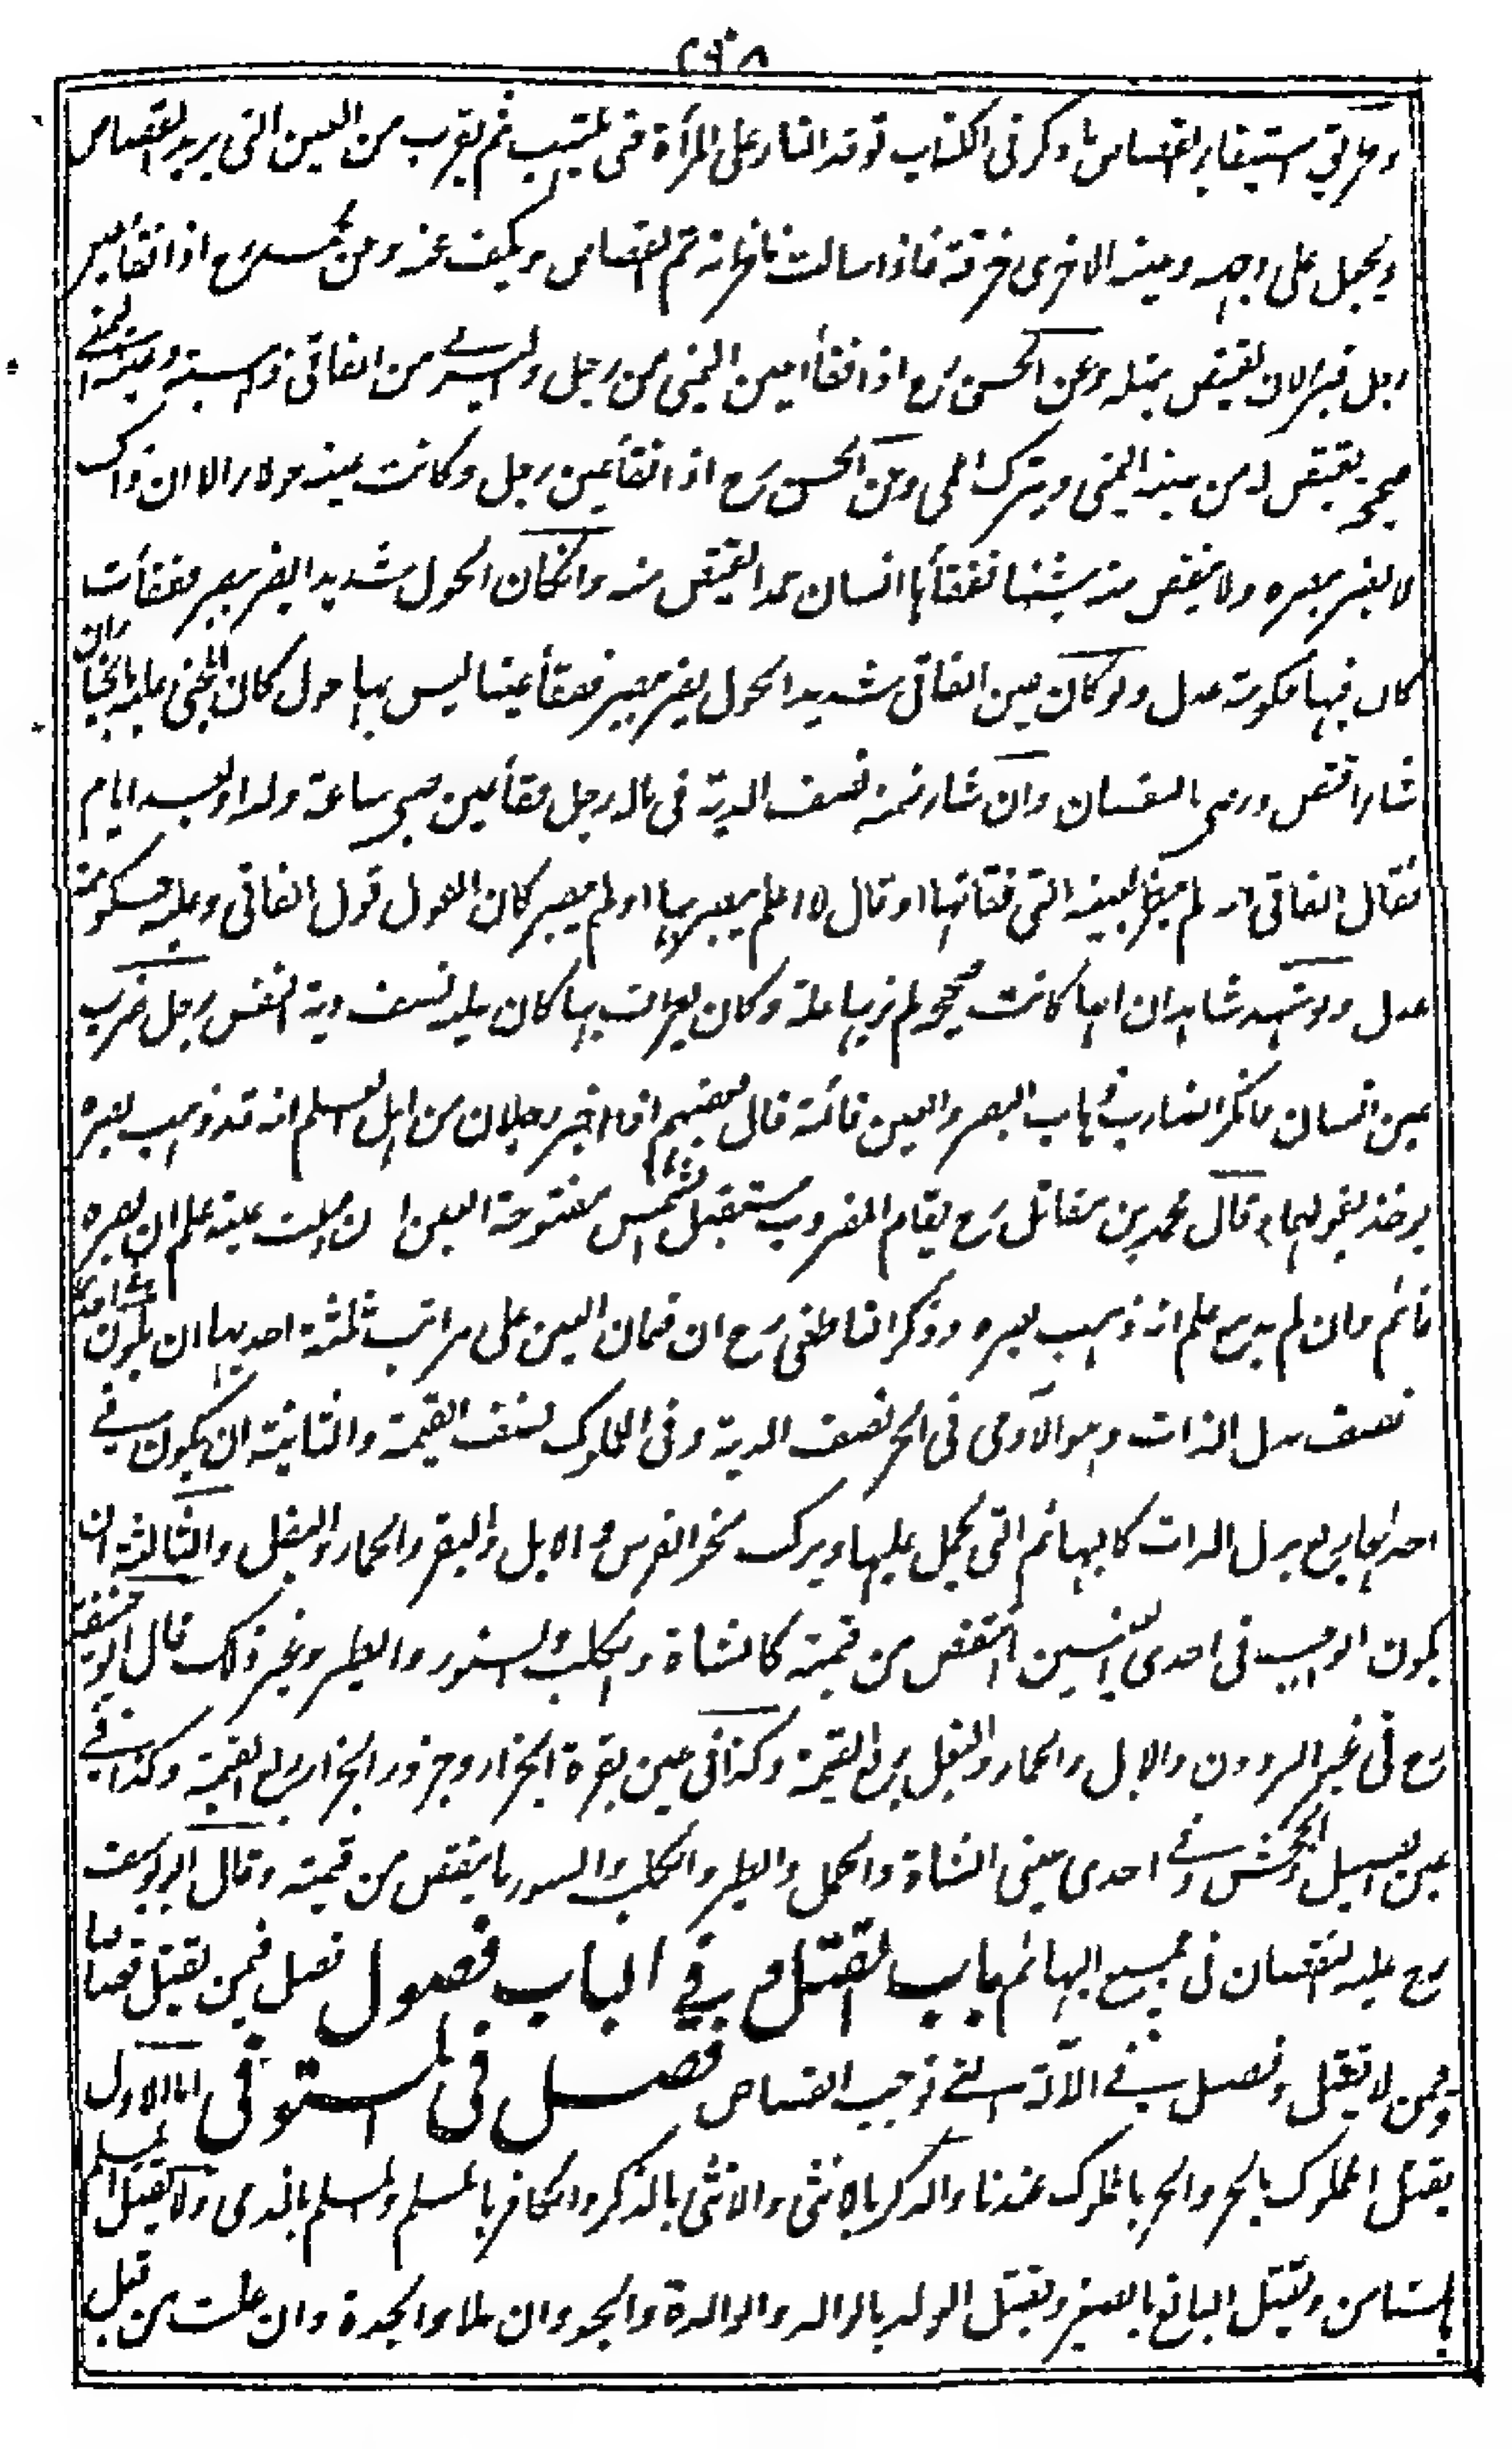 وطريق استيفاء القصاص ما ذكر فى الكتاب توقد النار على المرآة حتى تلتهب ثم يقرب من العين التى يريد القصاص
ويجعل على وجهه وعينه الاخرى خرقة فاذا سالت ناظرانه تم القصاص ويكف عنه وعن محمد رح اذا فقأ عين
رجل قبل لان يقتص بمثله وعن الحسن رح اذا فقأ العين اليمنى من رجل واليسرى من الفاقى ذاهبة وعينه اليمنى
صحيحة يقتص له من عينه اليمنى ويترك اعمى وعن الحسن رح اذا فقأ عين رجل وكانت عينه حولاء الا ان ذلك
لا يضر ببصره ولا ينقص منه شيئا ففقأها انسان عمدا يقتص منه وان كان الحول شديدا يضر ببصره ففقأت
كان فيها حكومة عدل ولو كان عين الفاقى شديد الحول يضر ببصره ففقأ عينا ليس بها حول كان المجنى عليه بالخيار ان
شاء اقتص ورضى بالنقصان وان شاء ضمنه نصف الدية فى ماله رجل فقأ عين صبى ساعة ولد او بعد ايام
فقال الفاقى انه لم يبصر بعينه التى فقأتها او قال لا اعلم يبصر بها او لم يبصر كان القول قول الفاقى وعليه حكومة
عدل ولو شهد شاهدان انها كانت صحيحة لم نر بها علة وكان يطرف بها كان عليه نصف دية النفس رجل ضرب
عين انسان فانكر الضارب ذهاب البصر والعين قائمة قال بعضهم اذا اخبر رجلان من اهل العلم انه قد ذهب بصره
يوخذ بقولهما وقال محمد بن مقاتل رح يقام المضروب مستقبل الشمس مفتوحة العين ان دمعت عينه علم ان بصره
قائم وان لم يدمع علم انه ذهب بصره وذكر الناطفى رح ان ضمان العين على مراتب ثلثة احدها ان يكون فى احدها
نصف بدل الذات وهو الآدمى فى الحر نصف الدية وفى المملوك نصف القيمة والثانية ان يكون فى
احدها ربع بدل الذات كالبهائم التى يحمل عليها ويركب نحو الفرس والابل والبقر والحمار والبغل والثالثة ان
يكون الواجب فى احدى العينين النقص من قيمته كالشاة والكلب والسنور والطير وغير ذلك قال ابو حنيفة
رح فى عين البرذون والابل والحمار والبغل ربع القيمة وكذا فى عين بقرة الجزار وجزور الجزار ربع القيمة وكذا فى
عين الفصيل والجحش وفى احدى عينى الشاة والحمل والطير والكلب والسنور ما ينقص من قيمته وقال ابو يوسف
رح عليه النقصان فى جميع البهائم باب القتل وفى الباب فصول فصل فيمن يقتل قصاصا
وفيمن لا يقتل وفصل فى الآلة التى توجب القصاص فصل فى المستوفى اما الاول
يقتل المملوك بالحر والحر بالمملوك عندنا والذكر بالانثى والانثى بالذكر والكافر بالمسلم والمسلم بالذمى ولا يقتل المسلم
بالمستامن ويقتل البالغ بالصغير ويقتل الولد بالوالد والوالدة والجد وان علا والجدة وان علت من قبل